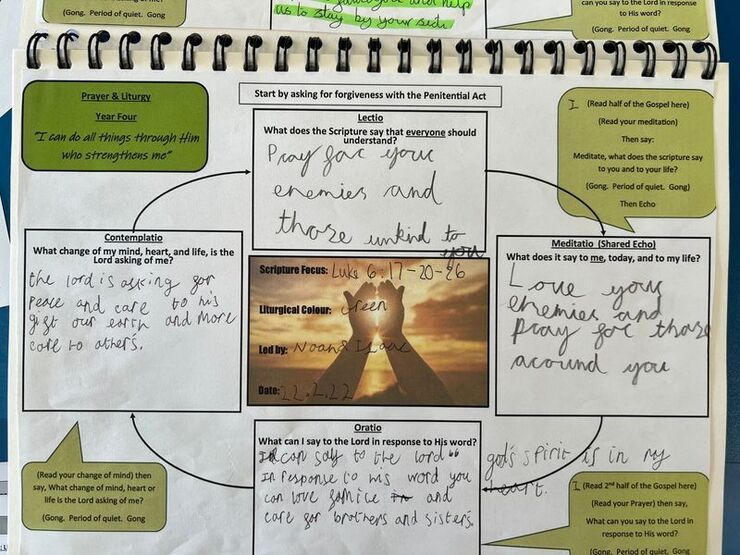 us to stay by your side
(Gong. Period of quiet. Gong
can you say to the Lord in response
to His word?
(Gong. Period of quiet. Gong
Prayer & Liturgy
Year Four
"I can do all things through Him
who strengthens me"
Start by asking for forgiveness with the Penitential Act
Lectio
What does the Scripture say that everyone should
understand?
Pray for your
enemies and
those unkind to
you
I (Read half of the Gospel here)
(Read your meditation)
Then say:
Meditate, what does the scripture say
to you and to your life?
(Gong. Period of quiet. Gong)
Then Echo
Contemplatio
What change of my mind, heart, and life, is the
Lord asking of me?
the lord is asking for
Peace and care to his
gift our earth and more
care to others.
Scripture Focus: Luke 6:17-20-26
Liturgical Colour: Green
Led by: Noand Isaac
Date: 22.2.22
Meditatio (Shared Echo)
What does it say to me, today, and to my life?
Love your
enemies and
pray for those
acound you
Oratio
What can I say to the Lord in response to His word?
can say to the lord "
In Response to his word you
can love and
care for brothers and sisters.
god's spirit is in my
heart.
(Read your change of mind) then
say, What change of mind, heart or
life is the Lord asking of me?
(Gong. Period of quiet. Gong
I (Read 2nd half of the Gospel here)
(Read your Prayer) then say,
What can you say to the Lord in
response to His word?
(Gong. Period of quiet. Gong